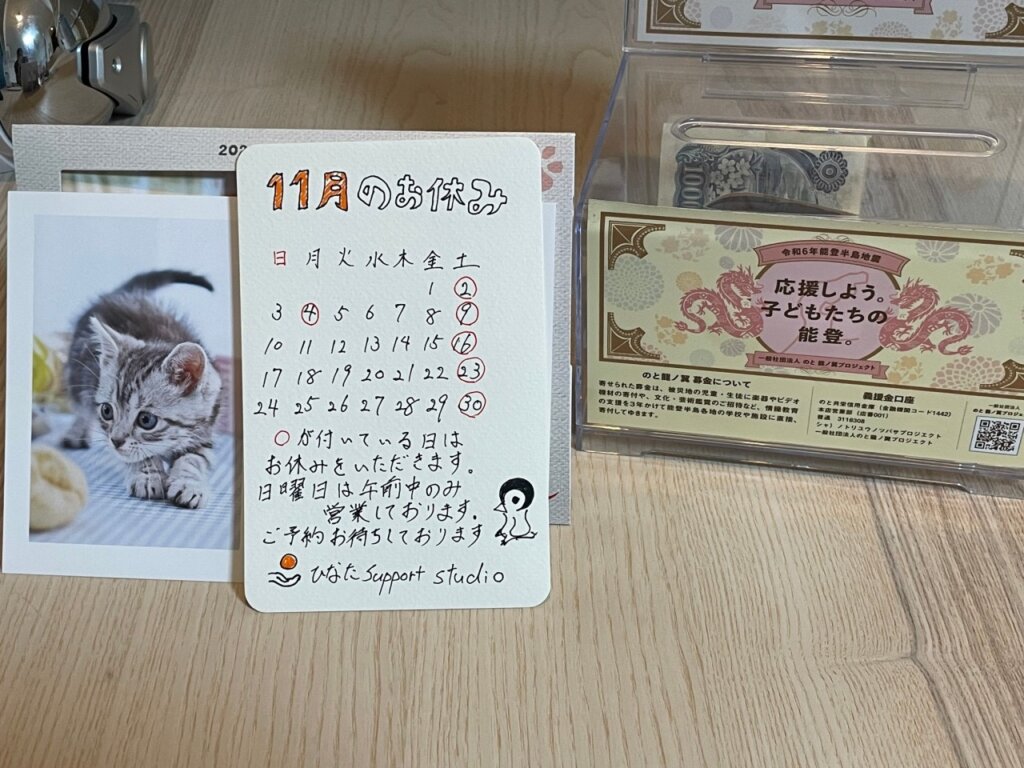 202
11月のお休み
日 月 火 水 木 金 土
1 2
3 4 5 6 7 8 9
10 11 12 13 14 15 16
17 18 19 20 21 22 23
24 25 26 27 28 29 30
○が付いている日は
お休みをいただきます。
日曜日は午前中のみ
営業しております。
ご予約お待ちしております
ひなたSupport studio
1000
令和6年能登半島地震
応援しよう。
子どもたちの
能登。
一般社団法人 のと龍ノ翼プロジェクト
のと龍ノ翼 募金について
寄せられた募金は、被災地の児童・生徒に楽器やビデオ
機材の寄付や、文化・芸術鑑賞のご招待など、情操教育
の支援を3年かけて能登半島各地の学校や施設に直接、
寄付してゆきます。
義援金口座
のと共栄信用金庫（金融機関コード1442）
本店営業部（店番001）
普通 3116308
シャ）ノトリユウノツバサプロジェクト
一般社団法人のと龍ノ翼プロジェクト
一般社団法人
のと龍ノ翼プロジェ